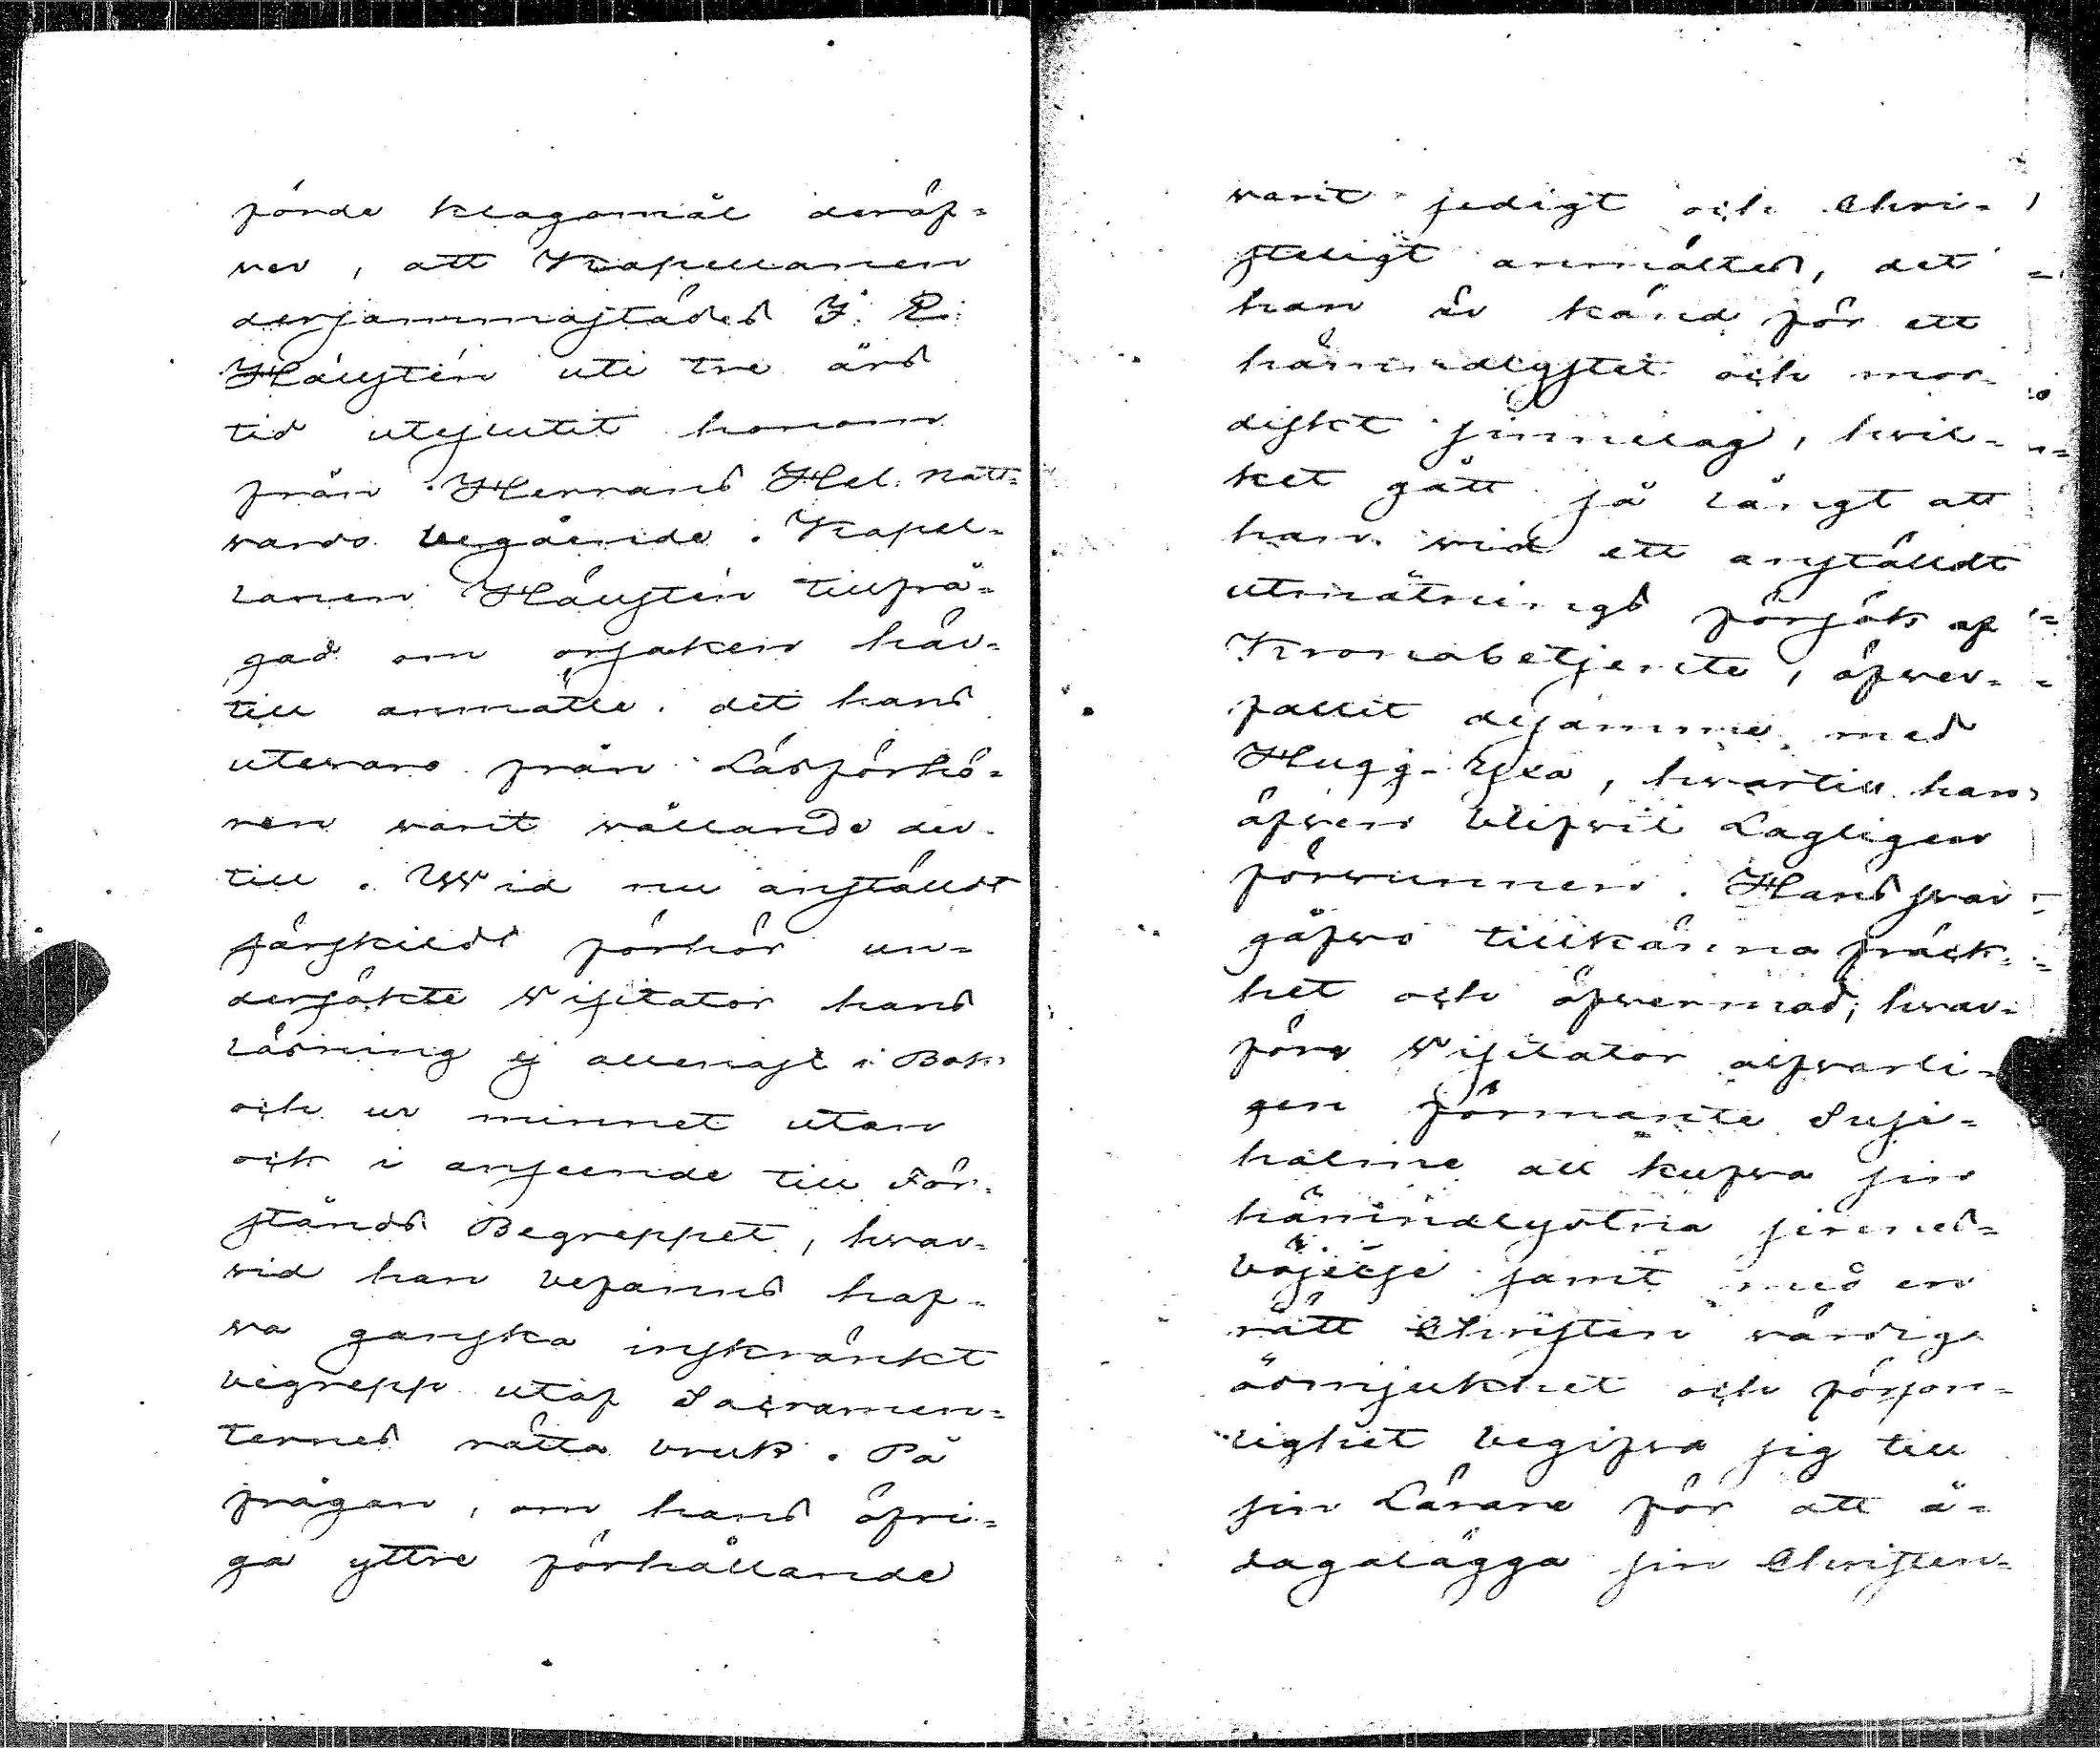 förde klagomål deröf=
ver, att Kapellanen
dersammastädes J. E.
Hällstén uti tre års
tid uteslutit honom
från Herrans Hel. Natt=
vards begående. Kapel=
lanen Hällstén tillfrå=
gad om orsaken här=
till anmälte, det hans
utevaro från Läsförhö=
ren varit vållande der=
till. Wid nu anstäldt
särskildt förhör un=
dersökte Visitator hans
läsning ej allenast i Bok
och ur minnet utan
ock i anseende till För=
stånds Begreppet, hvar=
vid han befanns haf=
va ganska inskränkt
begrepp utaf Sacramen=
ternes rätta bruk. På
frågan, om hans öfri=
ga yttre förhållande
varit sedigt och Chri=
steligt anmältes, det
han är känd för ett
hämndlystet och mor=
diskt sinnelag, hvil=
ket gått så långt att
han vid ett anstäldt
utmätnings försök af
Kronobetjente, öfver=
fallit desamme med
Hugg-Yxa, hvartill han
äfven blifvit Lagligen
förvunnen. Hans svar
gåfvo tillkänna fräck=
het och öfvermod; hvar=
före Visitator alfvarli=
gen förmante
att kufva sin
hämndlystna sinnes=
böjelse samt med en
rätt Christen värdig
ödmjukhet och förson=
lighet begifva sig till
sin Lärare för att å=
dagalägga sin Christen=